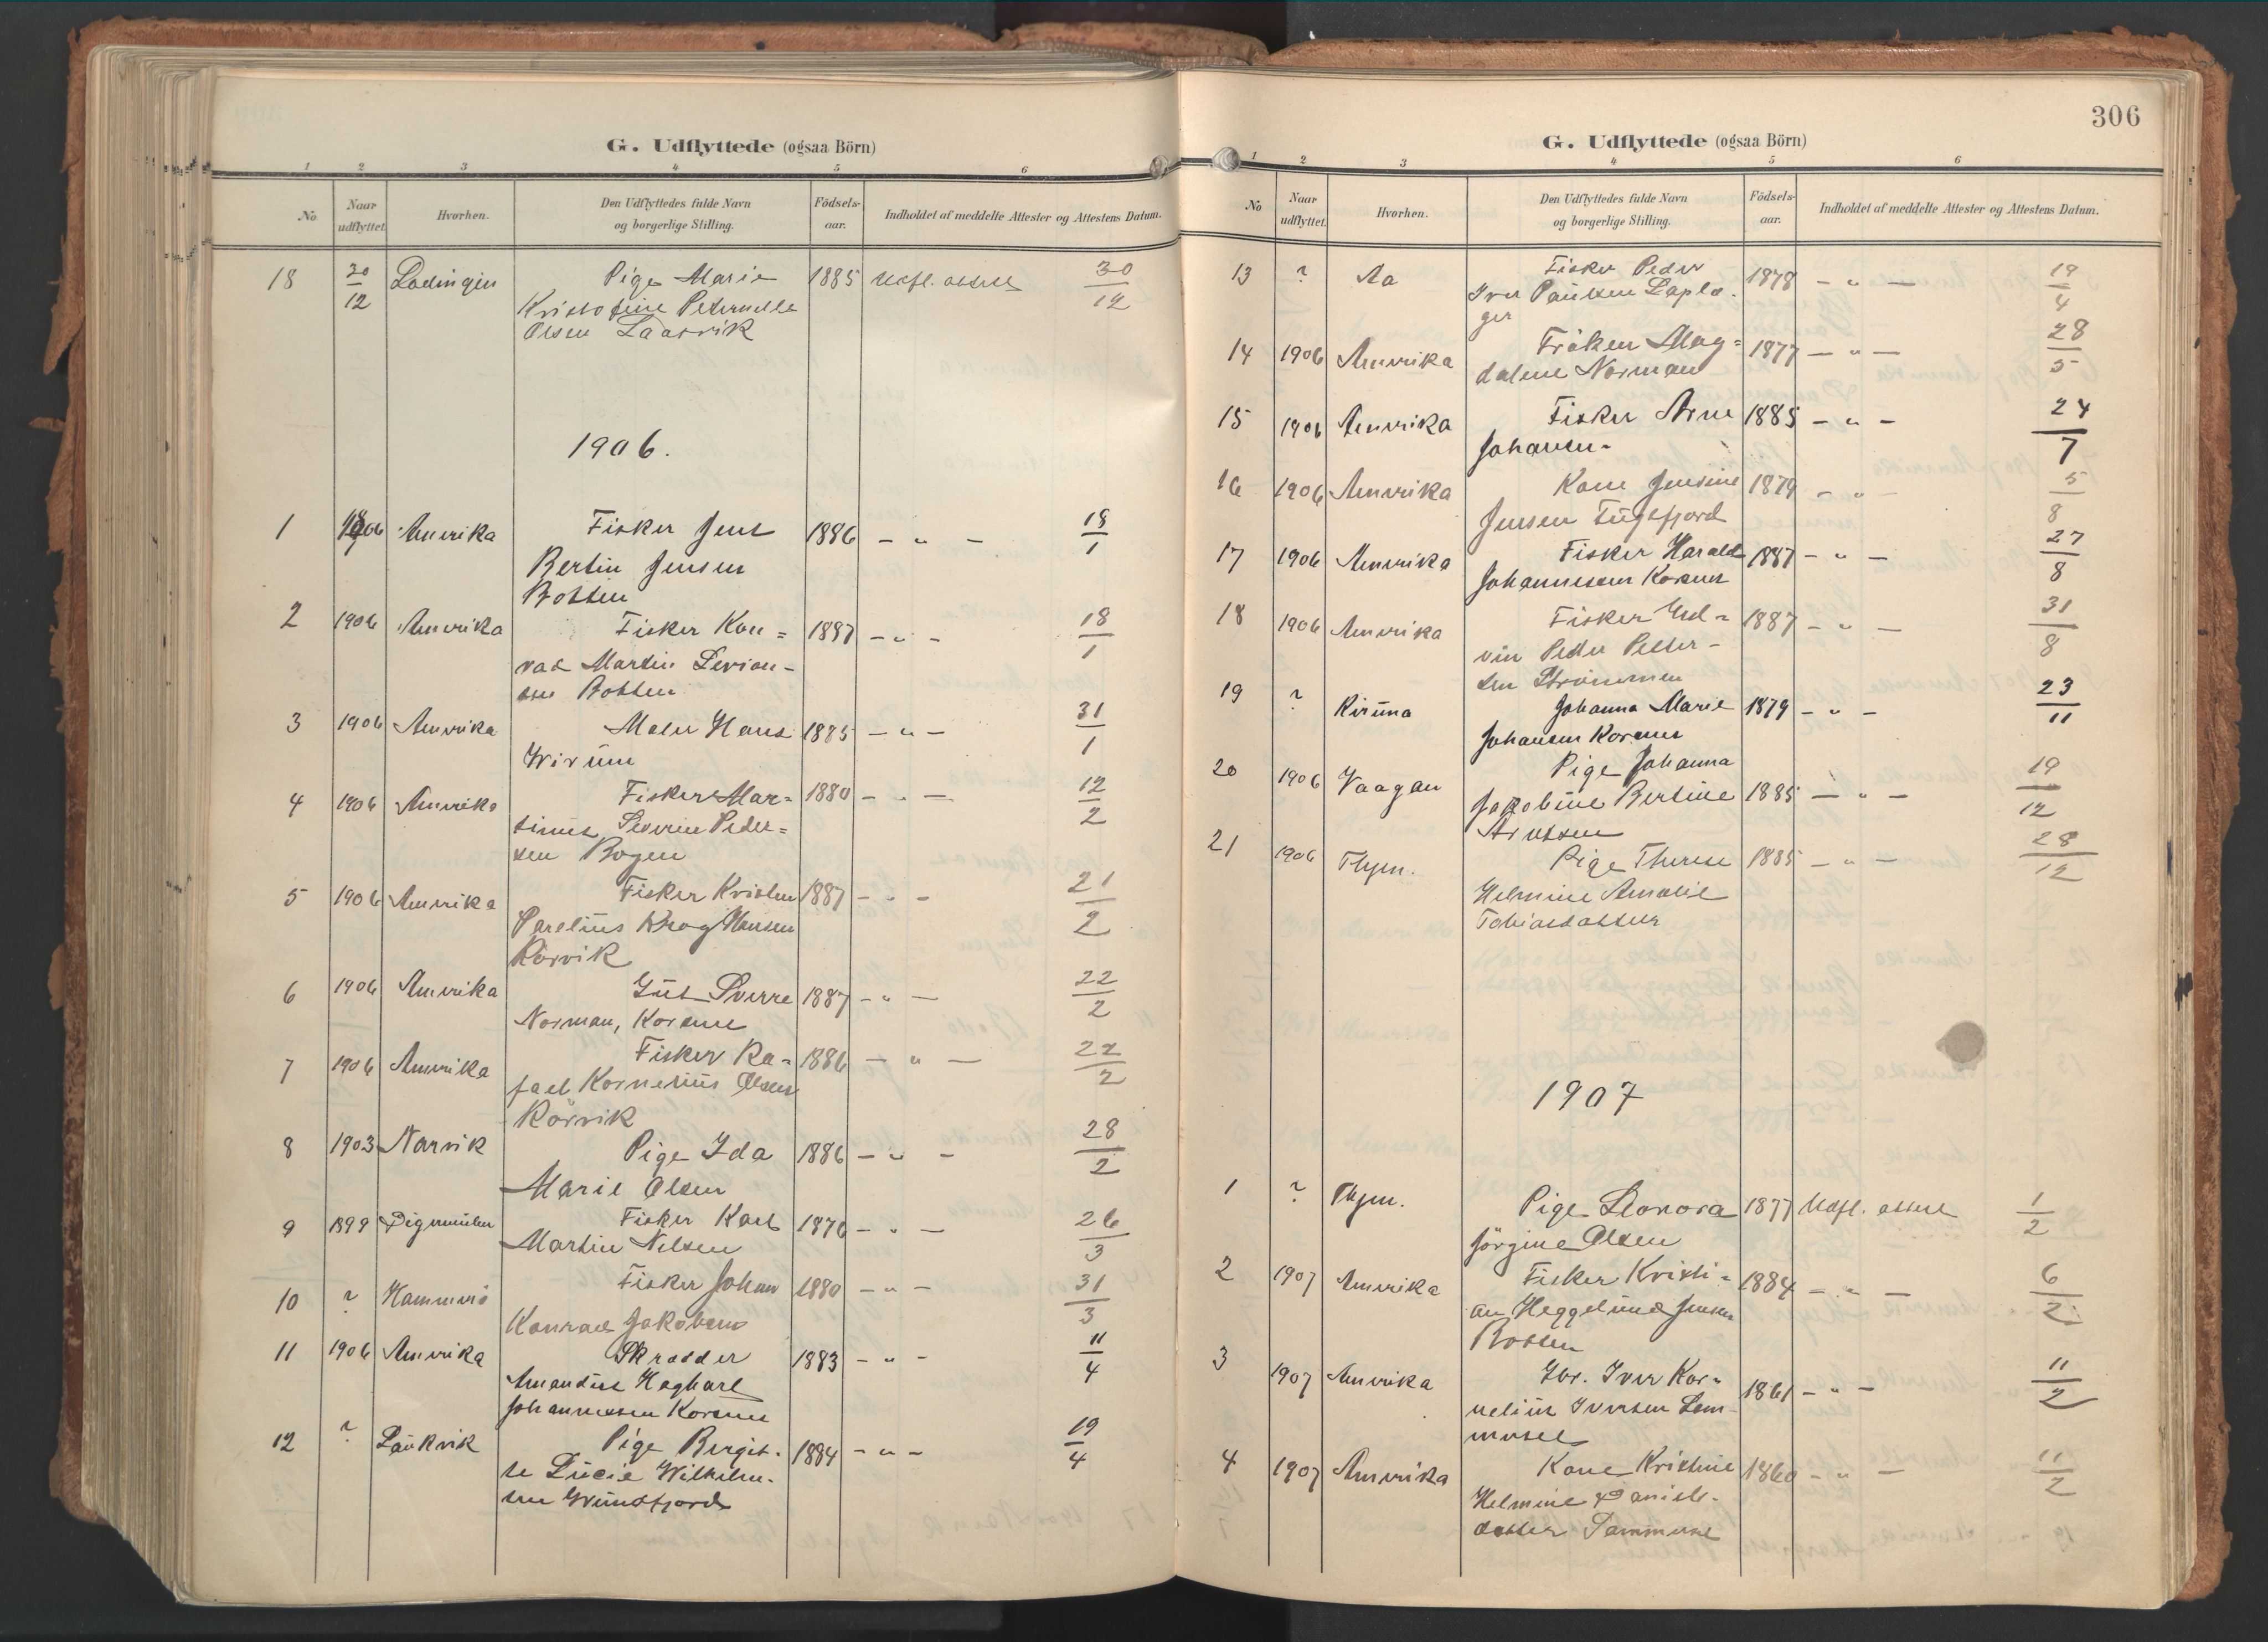 G. Udflyttede (ogsaa Börn)
1 2 3 4 5 6
No Naar udflyttet. Hvorhen. Den Udflyttedes fulde Navn og borgerlige Stilling. Födsels-aar. Indholdet af meddelte Attester og Attestens Datum.
18 30/12 Lødingen Pige Marie 1885 Udfl. attest 30/12
Kristofine Peternelle
Olsen Laasvik
1906.
1 1906 Amerika Fisker Jens 1886 - " - 18/1
Bertin Jensen
Botten
2 1906 Amerika Fisker Kon= 1887 - " - 18/1
rad Martin
Botten
3 1906 Amerika Maler Hans 1885 - " - 31/1
4 1906 Amerika Fisker Mar= 1880 - " - 12/2
tinus Severin Peder=
sen Bogen
5 1906 Amerika Fisker Kristen 1887 - " - 21/2
Parelius Krog Hansen
Rörvik
6 1906 Amerika Gut Sverre 1887 - " - 22/2
Norman, Korsnes
7 1906 Amerika Fisker Ra= 1886 - " - 22/2
fael Kornelius Olsen
Rörvik
8 1903 Narvik Pige Ida 1886 - " - 28/2
Marie Olsen
9 1899 Digermulen Fisker Karl 1876 - " - 26/3
Martin Nilsen
10 ? Hammerö Fisker Johan 1880 - " - 31/3
Konrad Jakobsen
11 1906 Amerika Skrædder 1883 - " - 11/4
Amandus Hagbart
Johannessen Korsnes
12 ? Laukvik Pige Bergit- 1884 - " - 19/4
te Lucie Wilhelm-
sen Grundfjord
306
G. Udflyttede (ogsaa Börn)
1 2 3 4 5 6
No Naar udflyttet. Hvorhen. Den Udflyttedes fulde Navn og borgerlige Stilling. Födsels-aar. Indholdet af meddelte Attester og Attestens Datum.
13 ? Aa Fisker Peder 1878 - " - 19/4
Iver Paulsen
14 1906 Amerika Fröken Mag= 1877 - " - 28/5
dalene Norman
15 1906 Amerika Fisker Arne 1885 - " - 24/7
Johansen
16 1906 Amerika Kone Jensine 1879 - " - 5/8
Jensen
17 1906 Amerika Fisker Harald 1887 - " - 27/8
Johannessen Korsnes
18 1906 Amerika Fisker 1887 - " - 31/8
vin Peder Peder-
sen Strömmen
19 ? Kiruna Johanna Marie 1879 - " - 23/11
Johansen Korsnes
20 1906 Vaagan Pige Johanna
Jakobine Bertine 1885 - " - 19/12
Arntsen
21 1906 Thjem. Pige Therese 1885 - " - 28/12
Helmine Amalie
Tobiasdatter
1907
1 ? Thjem. Pige Leonora 1877 Udfl. attest 1/2
Jörgine Olsen
2 1907 Amerika Fisker Kristi= 1884 - " - 6/2
an Heggelund Jensen
Botten
3 1907 Amerika Gbr. Iver Kor= 1861 - " - 11/2
nelius Iversen
4 1907 Amerika Kone Kristine 1860 - " - 11/2
Helmine Daniels-
datter